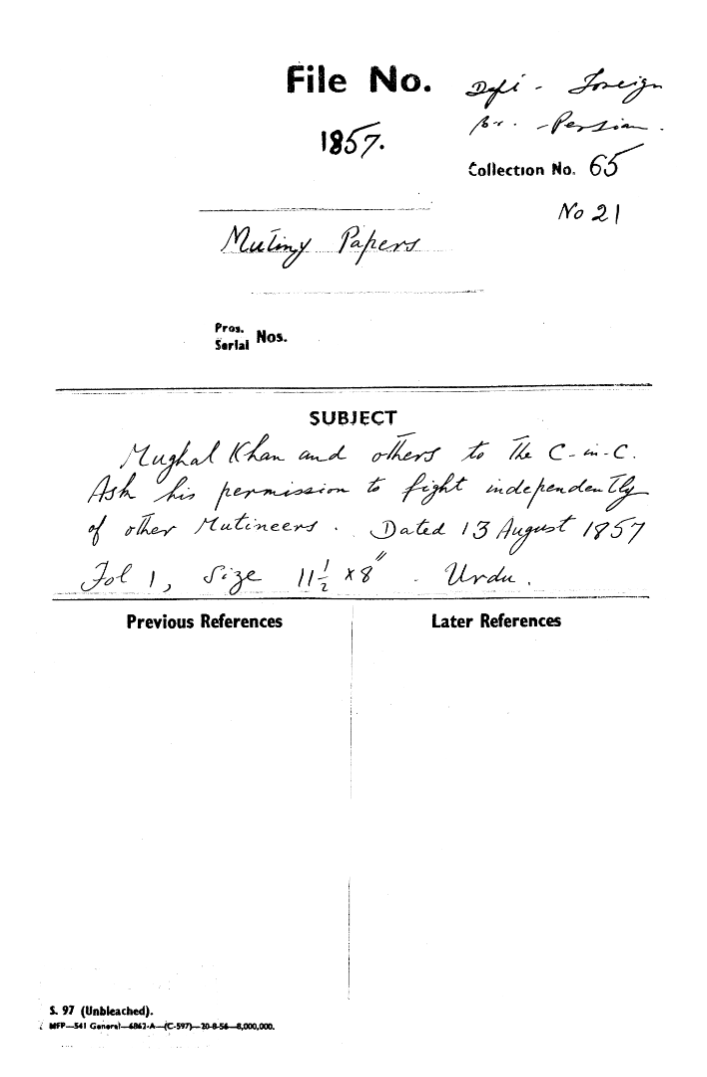 File No.
Dept - Foreign
Br. - Persian.
1857.
Collection No. 65
No 21
Mutiny Papers
Pros.
Serial Nos.
SUBJECT
Mughal Khan and others to the C-in-C.
Ask his permission to fight independently
of other Mutineers. Dated 13 August 1857
Fol 1, Size 11½ x 8" . Urdu.
Previous References
Later References
S. 97 (Unbleached).
MFP—541 General—6862-A—(C-597)—20-8-56—8,000,000.